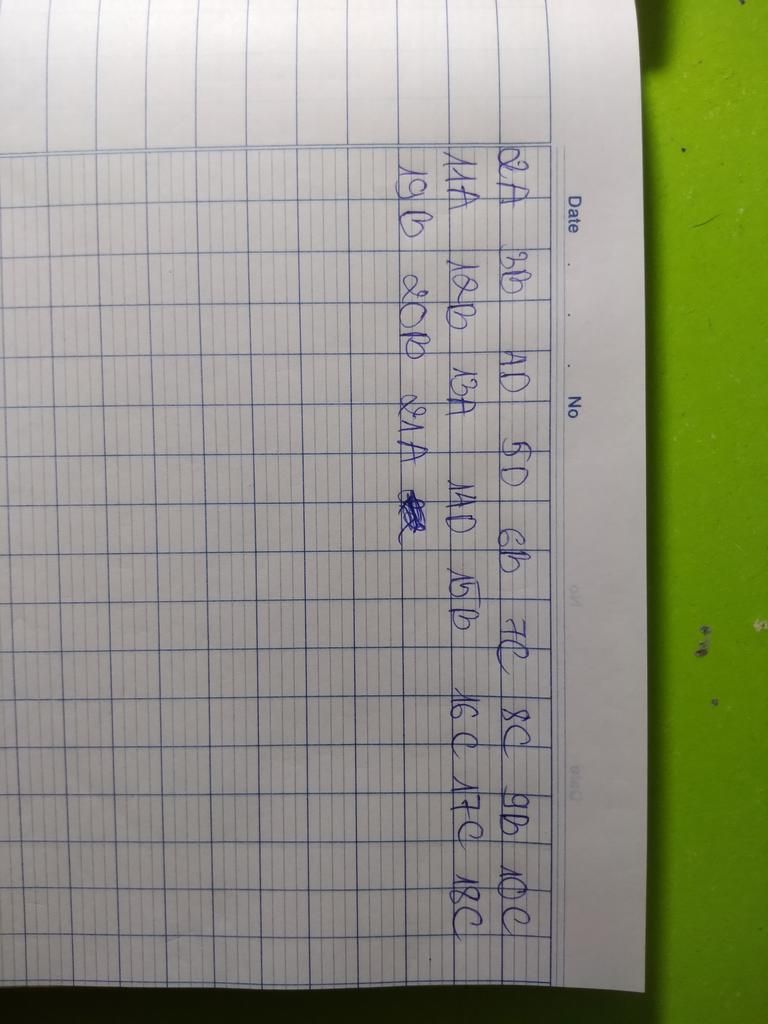 Date . . . No
2A 3B 4D 5D 6B 7C 8C 9B 10C
11A 12B 13A 14D 15B 16C 17C 18C
19B 20B 21A